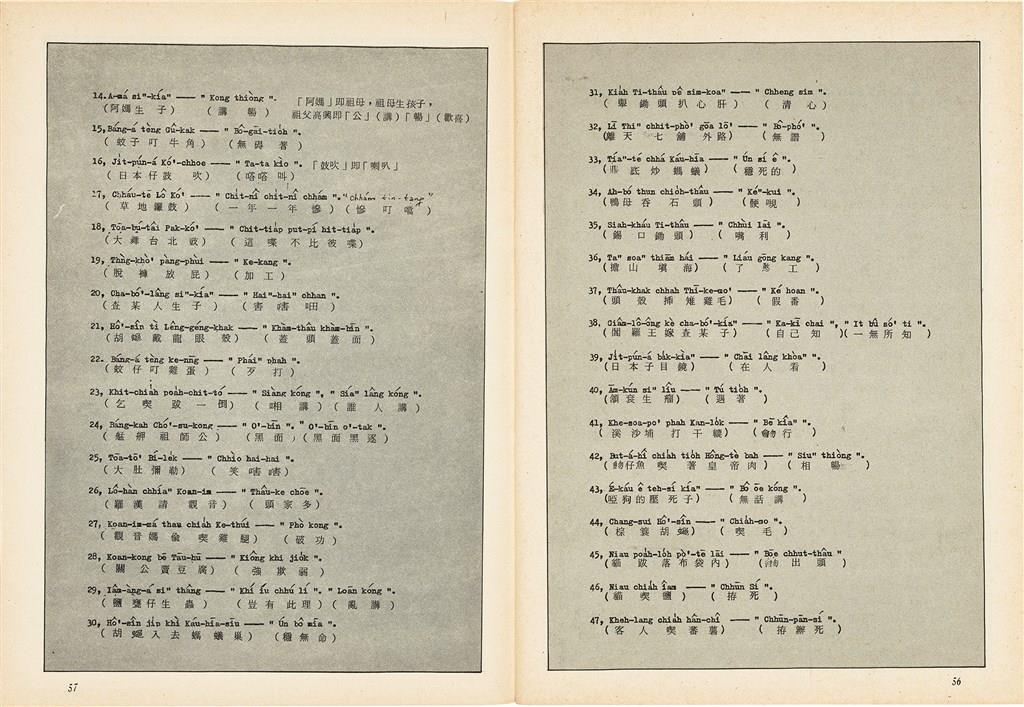 14. A-má siⁿ-kíaⁿ —— " Kong thiòng ".
(阿媽生 子) (講 暢) 「阿媽」即祖母,祖母生孩子,
祖父高興即「公」(講)「暢」(歡喜)
15, Báng-á tèng Gû-kak —— " Bô-gāi-tio̍h ".
(蚊子叮牛角) (無碍著)
16, Ji̍t-pún-á Kó͘-chhoe —— " Ta-ta kìo ". 「鼓吹」即「喇叭」
(日本仔鼓 吹) (嗒嗒叫)
17, Chháu-tē Lô Kó͘ —— " Chi̍t-nî chi̍t-nî chhám ".
(草地鑼鼓) (一年一年慘) (慘叮噹)
18, Tōa-bú-tâi Pak-kó͘ —— " Chit-tia̍p put-pí hit-tia̍p ".
(大舞台北鼓) (這喋不比彼喋)
19, Thǹg-khò͘ pàng-phùi —— " Ke-kang ".
(脫褲放屁) (加工)
20, Cha-bó͘-lâng siⁿ-kíaⁿ —— " Haiⁿ-haiⁿ chhan ".
(查某人生子) (害害呻)
21, Hô͘-sîn tì Lêng-géng-khak —— " Khàm-thâu khàm-bīn ".
(胡蠅戴龍眼殼) (蓋頭蓋面)
22. Báng-á tèng ke-nn̄g —— " Pháiⁿ phah ".
(蚊仔叮雞蛋) (歹打)
23, Khit-chia̍h poa̍h-chi̍t-tó —— " Siàng kóng ", " Síaⁿ lâng kóng ".
(乞喫跋一倒) (相講)(誰人講)
24, Báng-kah Chó͘-su-kong —— " O͘-bīn ". " O͘-bīn o͘-tak ".
(艋舺祖師公) (黑面)(黑面黑逐)
25, Tōa-tō͘ Bî-le̍k —— " Chhìo hai-hai ".
(大肚彌勒) (笑咍咍)
26, Lô-hàn chhíaⁿ Koan-im —— " Thâu-ke chōe ".
(羅漢請觀音) (頭家多)
27, Koan-im-má thau chia̍h Ke-thúi —— " Phò kong ".
(觀音媽偷喫雞腿) (破功)
28, Koan-kong bē Tāu-hū —— " Kiông khi jio̍k ".
(關公賣豆腐) (強欺弱)
29, Iâm-àng-á siⁿ thâng —— " Khí íu chhú lí ". " Loān kóng ".
(鹽甕仔生蟲) (豈有此理)(亂講)
30, Hô͘-sîn ji̍p khì Káu-hīa-siū —— " Ún bô mīa ".
(胡蠅入去螞蟻巢) (穩無命)
57
31, Kia̍h Ti-thâu pê sim-koaⁿ —— " Chheng sim ".
(舉鋤頭扒心肝) (清心)
32, Lī Thiⁿ chhit-phò͘ gōa lō͘ —— " Bô-phó͘ ".
(離天七舖外路) (無譜)
33, Tíaⁿ-té chhá Káu-hīa —— " Ún sí ê ".
(鼎底炒螞蟻) (穩死的)
34, Ah-bó thun chio̍h-thâu —— " Kéⁿ-kui ".
(鴨母吞石頭) (鯁 )
35, Siah-kháu Ti-thâu —— " Chhùi lāi ".
(錫口鋤頭) (嘴利)
36, Taⁿ soaⁿ thiām hái —— " Liáu gōng kang ".
(擔山填海) (了憨工)
37, Thâu-khak chhah Thī-ke-mo͘ —— " Ké hoan ".
(頭殼挿雉雞毛) (假番)
38, Giâm-lô-ông kè cha-bó͘-kíaⁿ —— " Ka-kī chai ", " It bû só͘ ti ".
(閻羅王嫁查某子) (自己知)(一無所知)
39, Ji̍t-pún-á ba̍k-kìaⁿ —— " Chāi lâng khòaⁿ ".
(日本子目鏡) (在人看)
40, Ām-kún siⁿ lîu —— " Tú tio̍h ".
(頷衮生瘤) (遇著)
41, Khe-soa-po͘ phah Kan-lo̍k —— " Bē kîaⁿ ".
(溪沙埔打干轆) (𣍐行)
42, But-á-hî chia̍h tio̍h Hông-tè bah —— " Siuⁿ thiòng ".
(魩仔魚喫著皇帝肉) (相暢)
43, É-káu ê teh-sí kíaⁿ —— " Bô ōe kóng ".
(啞狗的壓死子) (無話講)
44, Chang-sui Hô͘-sîn —— " Chia̍h-mo ".
(棕簑胡蠅) (喫毛)
45, Niau poa̍h-lo̍h pò͘-tē lāi —— " Bōe chhut-thâu "
(貓跋落布袋內) (𣍐出頭)
46, Niau chia̍h îam —— " Chhūn Sí ".
(貓喫鹽) (拵死)
47, Kheh-lang chia̍h hân-chî —— " Chhūn-pān-sí ".
(客人喫蕃薯) (拵辦死)
56